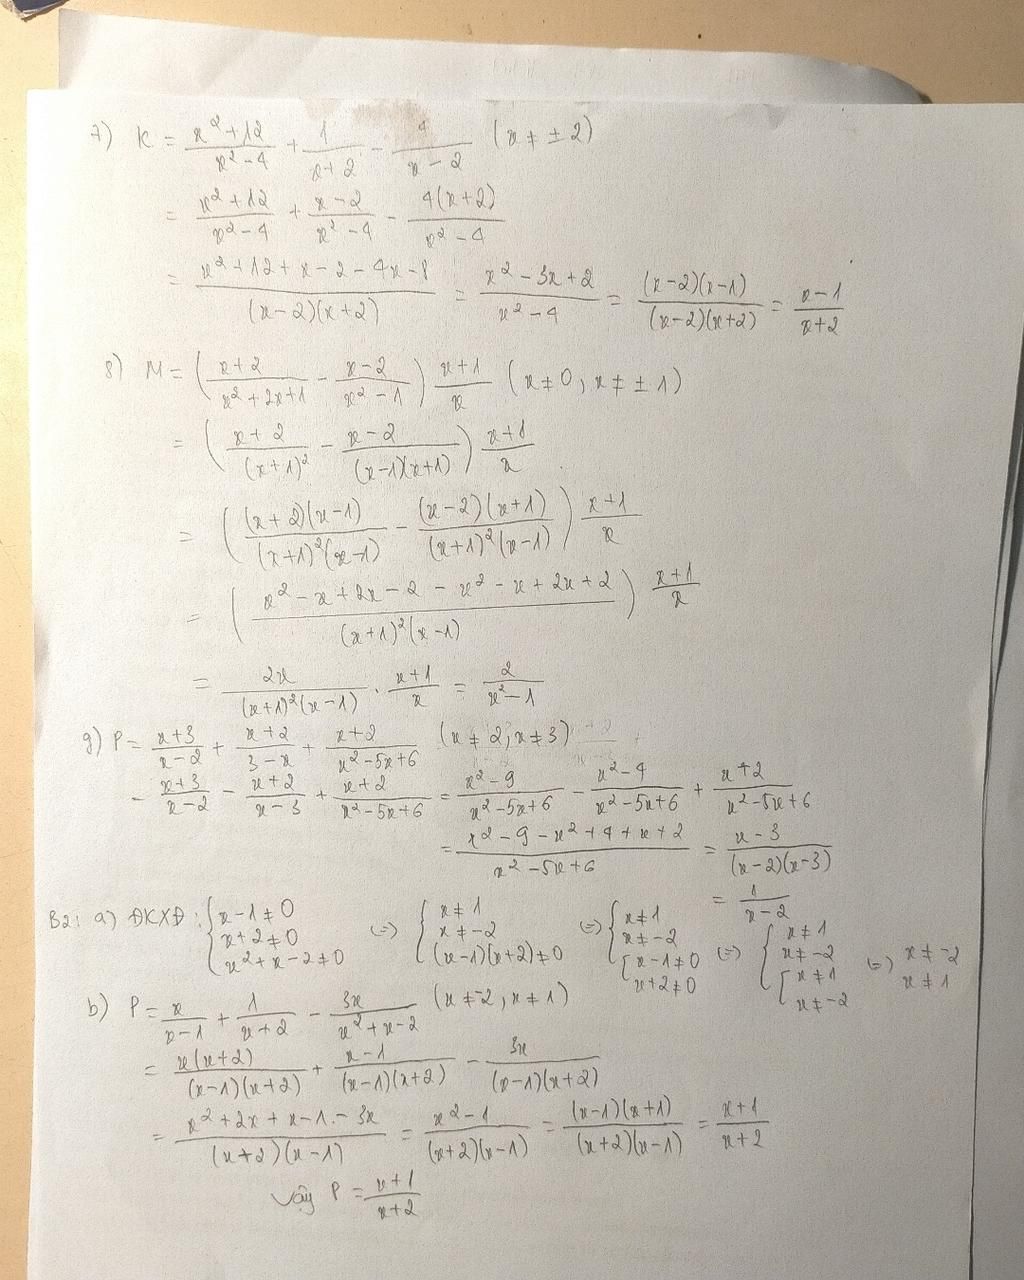 7) K = \frac{x^2+12}{x^2-4} + \frac{1}{x+2} - \frac{4}{x-2} (x ≠ ±2)
= \frac{x^2+12}{x^2-4} + \frac{x-2}{x^2-4} - \frac{4(x+2)}{x^2-4}
= \frac{x^2+12+x-2-4x-8}{(x-2)(x+2)} = \frac{x^2-3x+2}{x^2-4} = \frac{(x-2)(x-1)}{(x-2)(x+2)} = \frac{x-1}{x+2}
8) M = (\frac{x+2}{x^2+2x+1} - \frac{x-2}{x^2-1}) \frac{x+1}{x} (x ≠ 0, x ≠ ±1)
= (\frac{x+2}{(x+1)^2} - \frac{x-2}{(x-1)(x+1)}) \frac{x+1}{x}
= (\frac{(x+2)(x-1)}{(x+1)^2(x-1)} - \frac{(x-2)(x+1)}{(x+1)^2(x-1)}) \frac{x+1}{x}
= (\frac{x^2-x+2x-2-x^2-x+2x+2}{(x+1)^2(x-1)}) \frac{x+1}{x}
= \frac{2x}{(x+1)^2(x-1)} . \frac{x+1}{x} = \frac{2}{x^2-1}
9) P = \frac{x+3}{x-2} + \frac{x+2}{3-x} + \frac{x+2}{x^2-5x+6} (x ≠ 2, x ≠ 3)
= \frac{x+3}{x-2} - \frac{x+2}{x-3} + \frac{x+2}{x^2-5x+6} = \frac{x^2-9}{x^2-5x+6} - \frac{x^2-4}{x^2-5x+6} + \frac{x+2}{x^2-5x+6}
= \frac{x^2-9-x^2+4+x+2}{x^2-5x+6} = \frac{x-3}{(x-2)(x-3)}
= \frac{1}{x-2}
B2: a) ĐKXĐ: { x-1≠0 ; x+2≠0 ; x^2+x-2≠0 (=) { x≠1 ; x≠-2 ; (x-1)(x+2)≠0 (=) { x≠1 ; x≠-2 ; [ x-1≠0 ; x+2≠0 (=) { x≠1 ; x≠-2 ; [ x≠1 ; x≠-2 (=) x≠-2 ; x≠1
b) P = \frac{x}{x-1} + \frac{1}{x+2} - \frac{3x}{x^2+x-2} (x≠-2, x≠1)
= \frac{x(x+2)}{(x-1)(x+2)} + \frac{x-1}{(x-1)(x+2)} - \frac{3x}{(x-1)(x+2)}
= \frac{x^2+2x+x-1-3x}{(x+2)(x-1)} = \frac{x^2-1}{(x+2)(x-1)} = \frac{(x-1)(x+1)}{(x+2)(x-1)} = \frac{x+1}{x+2}
Vậy P = \frac{x+1}{x+2}